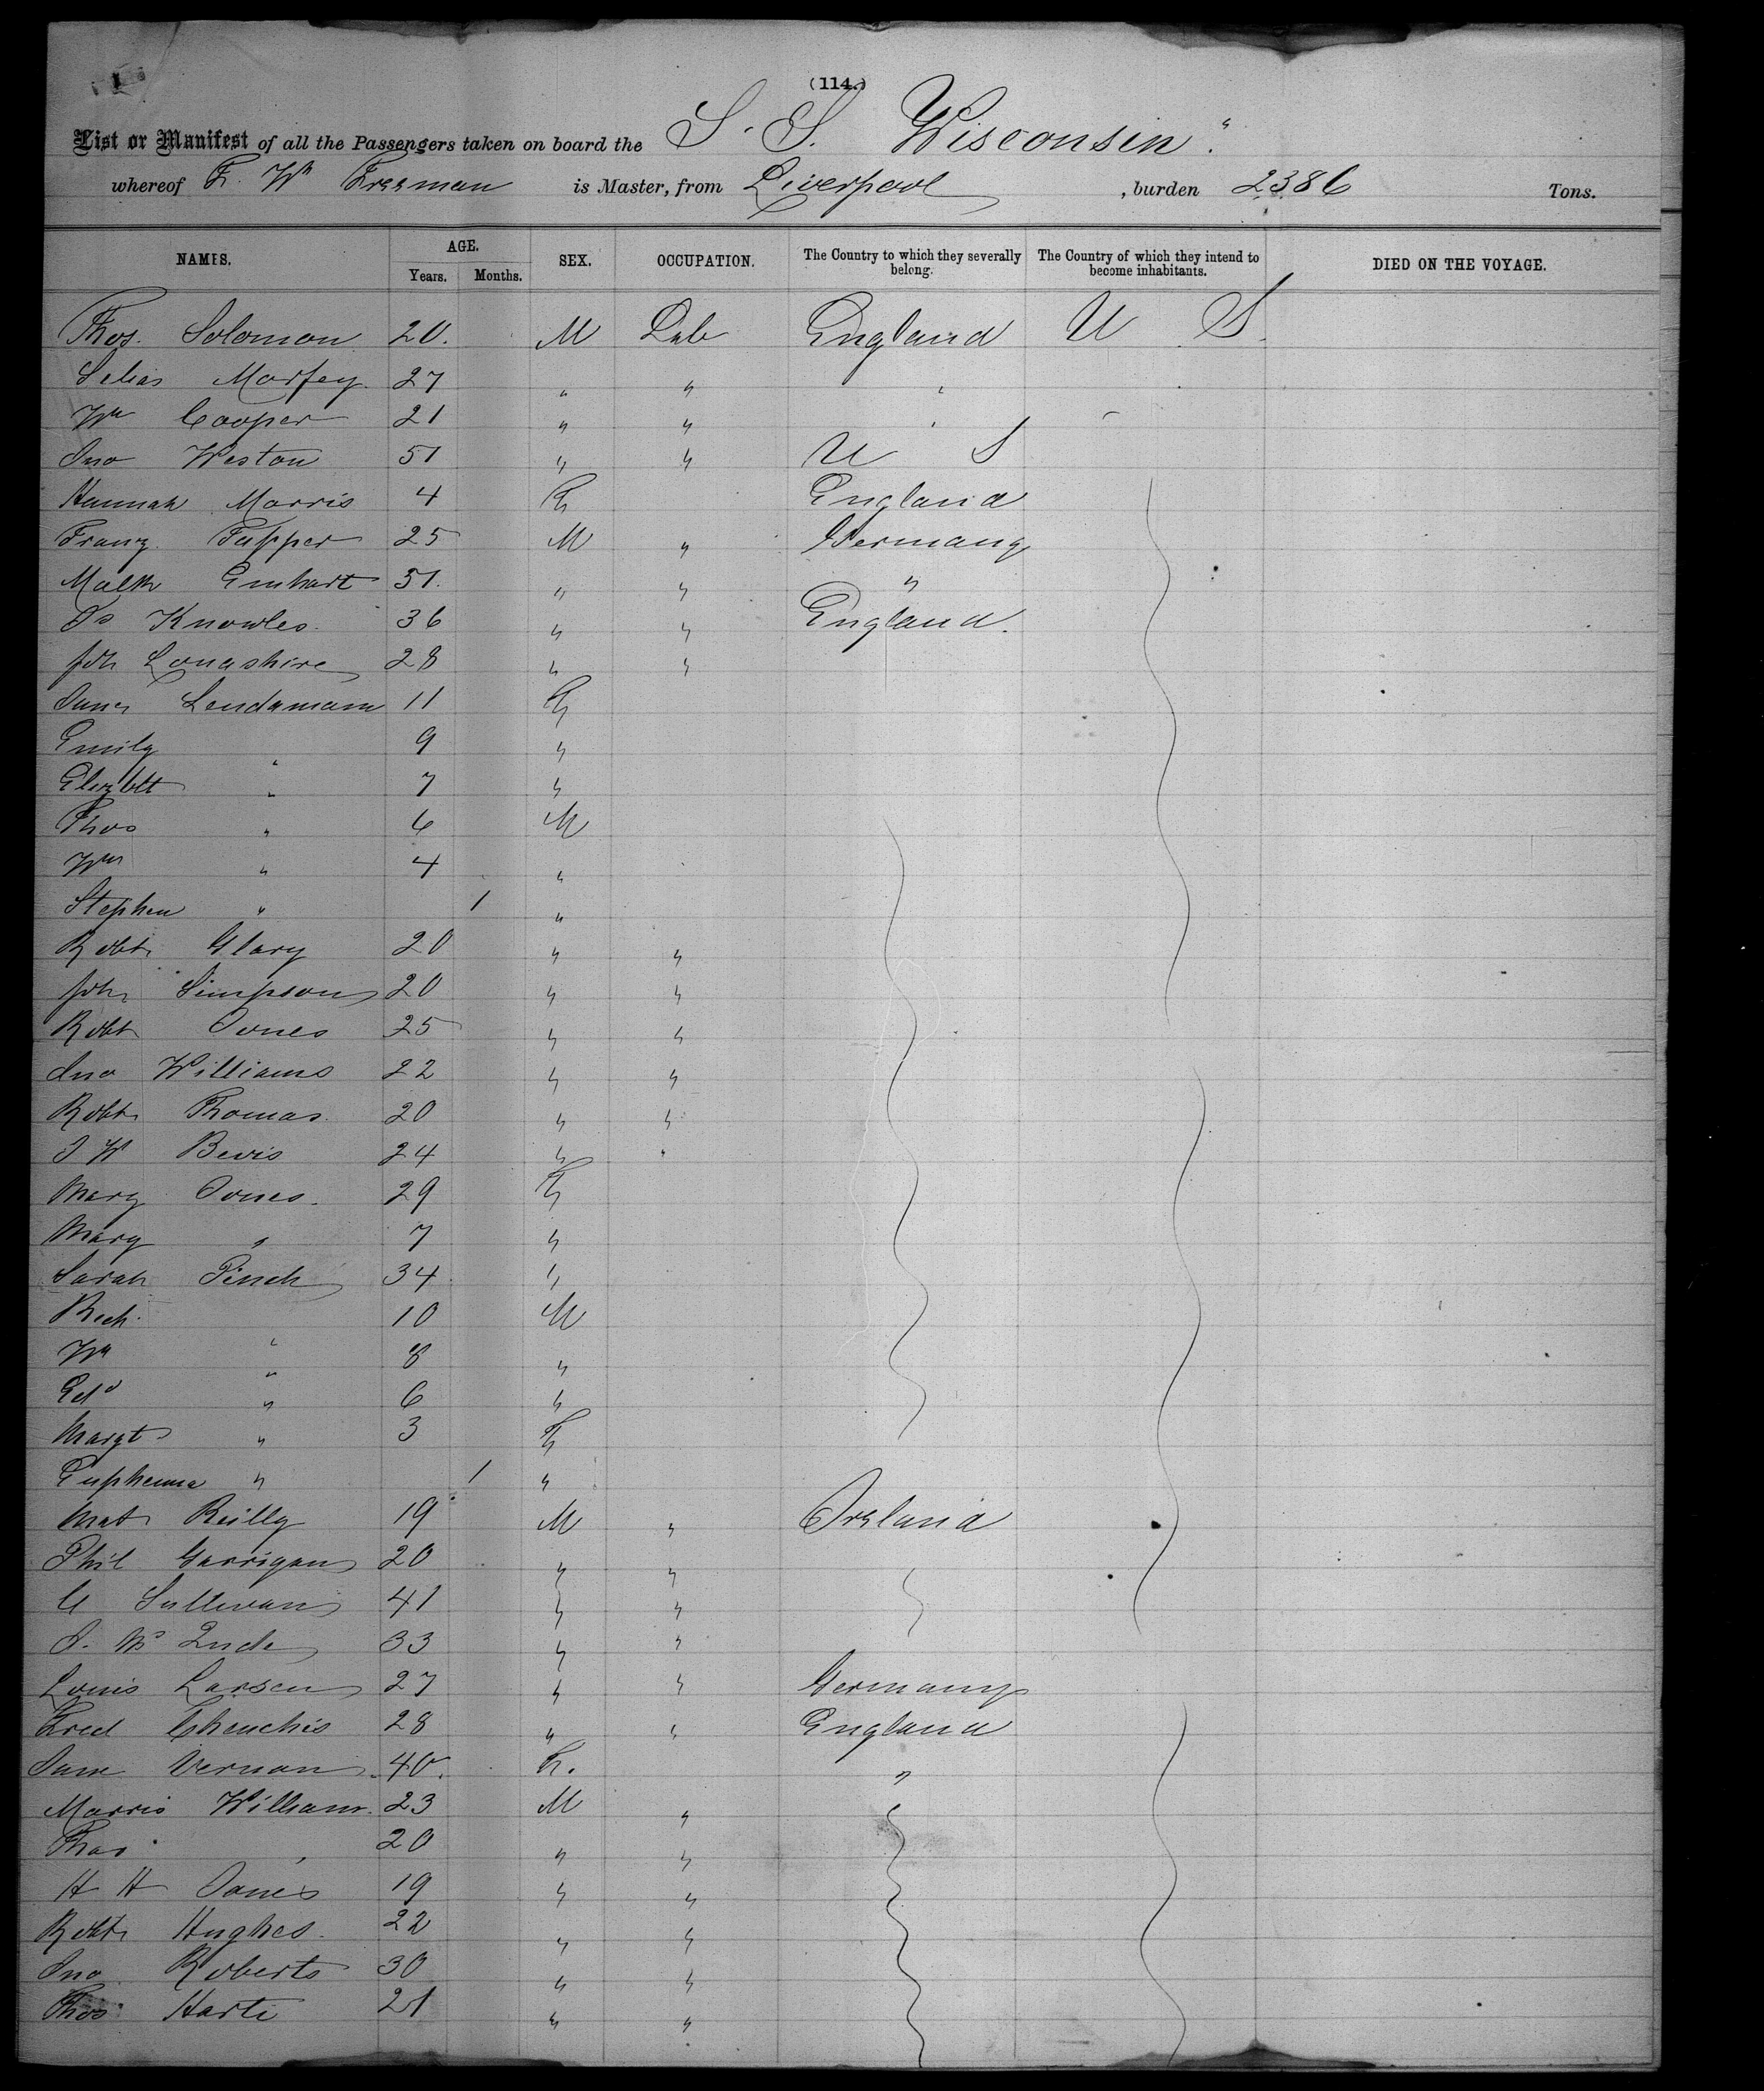 (114.)
List or Manifest of all the Passengers taken on board the S. S. Wisconsin
whereof F. Wm Freeman is Master, from Liverpool , burden 2386 Tons.
NAMES. AGE. Years. Months. SEX. OCCUPATION. The Country to which they severally belong. The Country of which they intend to become inhabitants. DIED ON THE VOYAGE.
Thos. Solomon 20. M Lab England U S.
Morfey 27 " " "
Wm Cooper 21 " " "
Jno Weston 51 " " U S
Hannah Morris 4 F England
Franz Tupper 25 M " Germany
Emhart 51. " " "
Js Knowles. 36 " " England.
Joh Lonashire 28 " "
11 F
Emily " 9 "
Elizbtt " 7 "
Thos " 6 M
Wm " 4 "
Stephen " 1 "
Robt Glary 20 " "
Joh Simpson 20 " "
Robt Jones 25 " "
Jno Williams 22 " "
Robt Thomas. 20 " "
J W Bevis 24 " "
Mary Jones. 29 F
Mary " 7 "
Sarah Pinch 34 "
Rich. " 10 M
Wm " 8 "
Edd " 6 "
Margt " 3 F
Euphemia " 1 "
Mat Reilly 19 M " Ireland
Phil Garrigan 20 " "
C Sullivan 41 " "
J. Mc 33 " "
Louis Larsen 27 " " Germany
Fred 28 " " England
Jane Vernon 40. F. "
Morris William 23 M "
Thos " 20 " "
H H Jones 19 " "
Robt Hughes. 22 " "
Jno Roberts 30 " "
Thos Harte 21 " "